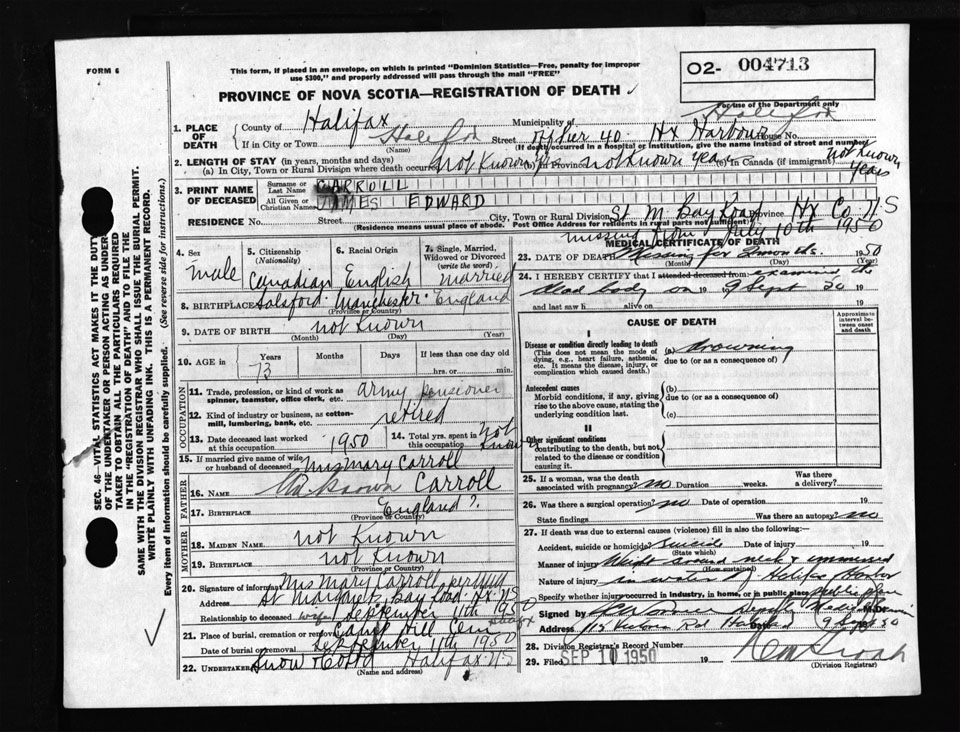 FORM 6
This form, if placed in an envelope, on which is printed "Dominion Statistics—Free, penalty for improper
use $300," and properly addressed will pass through the mail "FREE"
O2- 004713
PROVINCE OF NOVA SCOTIA—REGISTRATION OF DEATH ✓
For use of the Department only
Halifax
1. PLACE OF DEATH
County of Halifax Municipality of
If in City or Town Halifax Street Off Pier 40. Hx Harbour House No.
(Name) (If death occurred in a hospital or institution, give the name instead of street and number)
2. LENGTH OF STAY (in years, months and days)
(a) In City, Town or Rural Division where death occurred not known yrs (b) Province not known years (c) In Canada (if immigrant) not known years
3. PRINT NAME OF DECEASED
Surname or Last Name CARROLL
All Given or Christian Names JAMES EDWARD
RESIDENCE No. Street City, Town or Rural Division St M. Bay Road Province Hx Co. N S
(Residence means usual place of abode. Post Office Address for residents in rural parts not sufficient)
4. Sex
male
5. Citizenship
(Nationality)
Canadian
6. Racial Origin
English
7. Single, Married, Widowed or Divorced
(write the word)
married
8. BIRTHPLACE Salsford Manchester England
(Province or Country)
9. DATE OF BIRTH not known
(Month) (Day) (Year)
10. AGE in Years Months Days If less than one day old
73 hrs. or min.
OCCUPATION
11. Trade, profession, or kind of work as
spinner, teamster, office clerk, etc. army pensioner
12. Kind of industry or business, as cotton-
mill, lumbering, bank, etc. retired
13. Date deceased last worked
at this occupation 1950
14. Total yrs. spent in
this occupation not known
15. If married give name of wife
or husband of deceased Mrs Mary Carroll
FATHER
16. NAME Unknown Carroll
17. BIRTHPLACE England ?
(Province or Country)
MOTHER
18. MAIDEN NAME not known
19. BIRTHPLACE not known
(Province or Country)
20. Signature of informant Mrs Mary Carroll per
Address St Margarets Bay Road Hx. N S
Relationship to deceased wife September 11th 1950
21. Place of burial, cremation or removal Camp Hill Cem Halifax
Date of burial or removal September 11th 1950
22. UNDERTAKER Snow & Co Ltd Halifax N.S
(Name and address)
missing from July 10th 1950
MEDICAL CERTIFICATE OF DEATH
23. DATE OF DEATH Missing for 2 months 1950
(Month) (Day) (Year)
24. I HEREBY CERTIFY that I attended deceased from examined the
dead body on 19 9 Sept 50 19
and last saw h alive on 19
CAUSE OF DEATH
Approximate interval between onset and death
I
Disease or condition directly leading to death
(This does not mean the mode of dying, e.g., heart failure, asthenia, etc. It means the disease, injury, or complication which caused death.)
(a) Drowning
due to (or as a consequence of)
Antecedent causes
Morbid conditions, if any, giving rise to the above cause, stating the underlying condition last.
(b)
due to (or as a consequence of)
(c)
II
Other significant conditions
contributing to the death, but not related to the disease or condition causing it.
25. If a woman, was the death
associated with pregnancy? no Duration weeks. Was there a delivery?
26. Was there a surgical operation? no Date of operation 19
State findings Was there an autopsy? no
27. If death was due to external causes (violence) fill in also the following:—
Accident, suicide or homicide? suicide Date of injury 19
(State which)
Manner of injury Weight around neck & immersed
(How sustained)
Nature of injury in water of Halifax Harbor
Specify whether injury occurred in industry, in home, or in public place public place
Signed by Deputy Medical M.D.
Address 112 Victoria Rd 9 Sept 1950
28. Division Registrar's Record Number
29. Filed SEP 10 1950 19
(Division Registrar)
SEC. 46—VITAL STATISTICS ACT MAKES IT THE DUTY
OF THE UNDERTAKER OR PERSON ACTING AS UNDER-
TAKER TO OBTAIN ALL THE PARTICULARS REQUIRED
IN THE "REGISTRATION OF DEATH" AND TO FILE THE
SAME WITH THE DIVISION REGISTRAR WHO SHALL ISSUE THE BURIAL PERMIT.
WRITE PLAINLY WITH UNFADING INK. THIS IS A PERMANENT RECORD.
Every item of information should be carefully supplied. (See reverse side for instructions.)